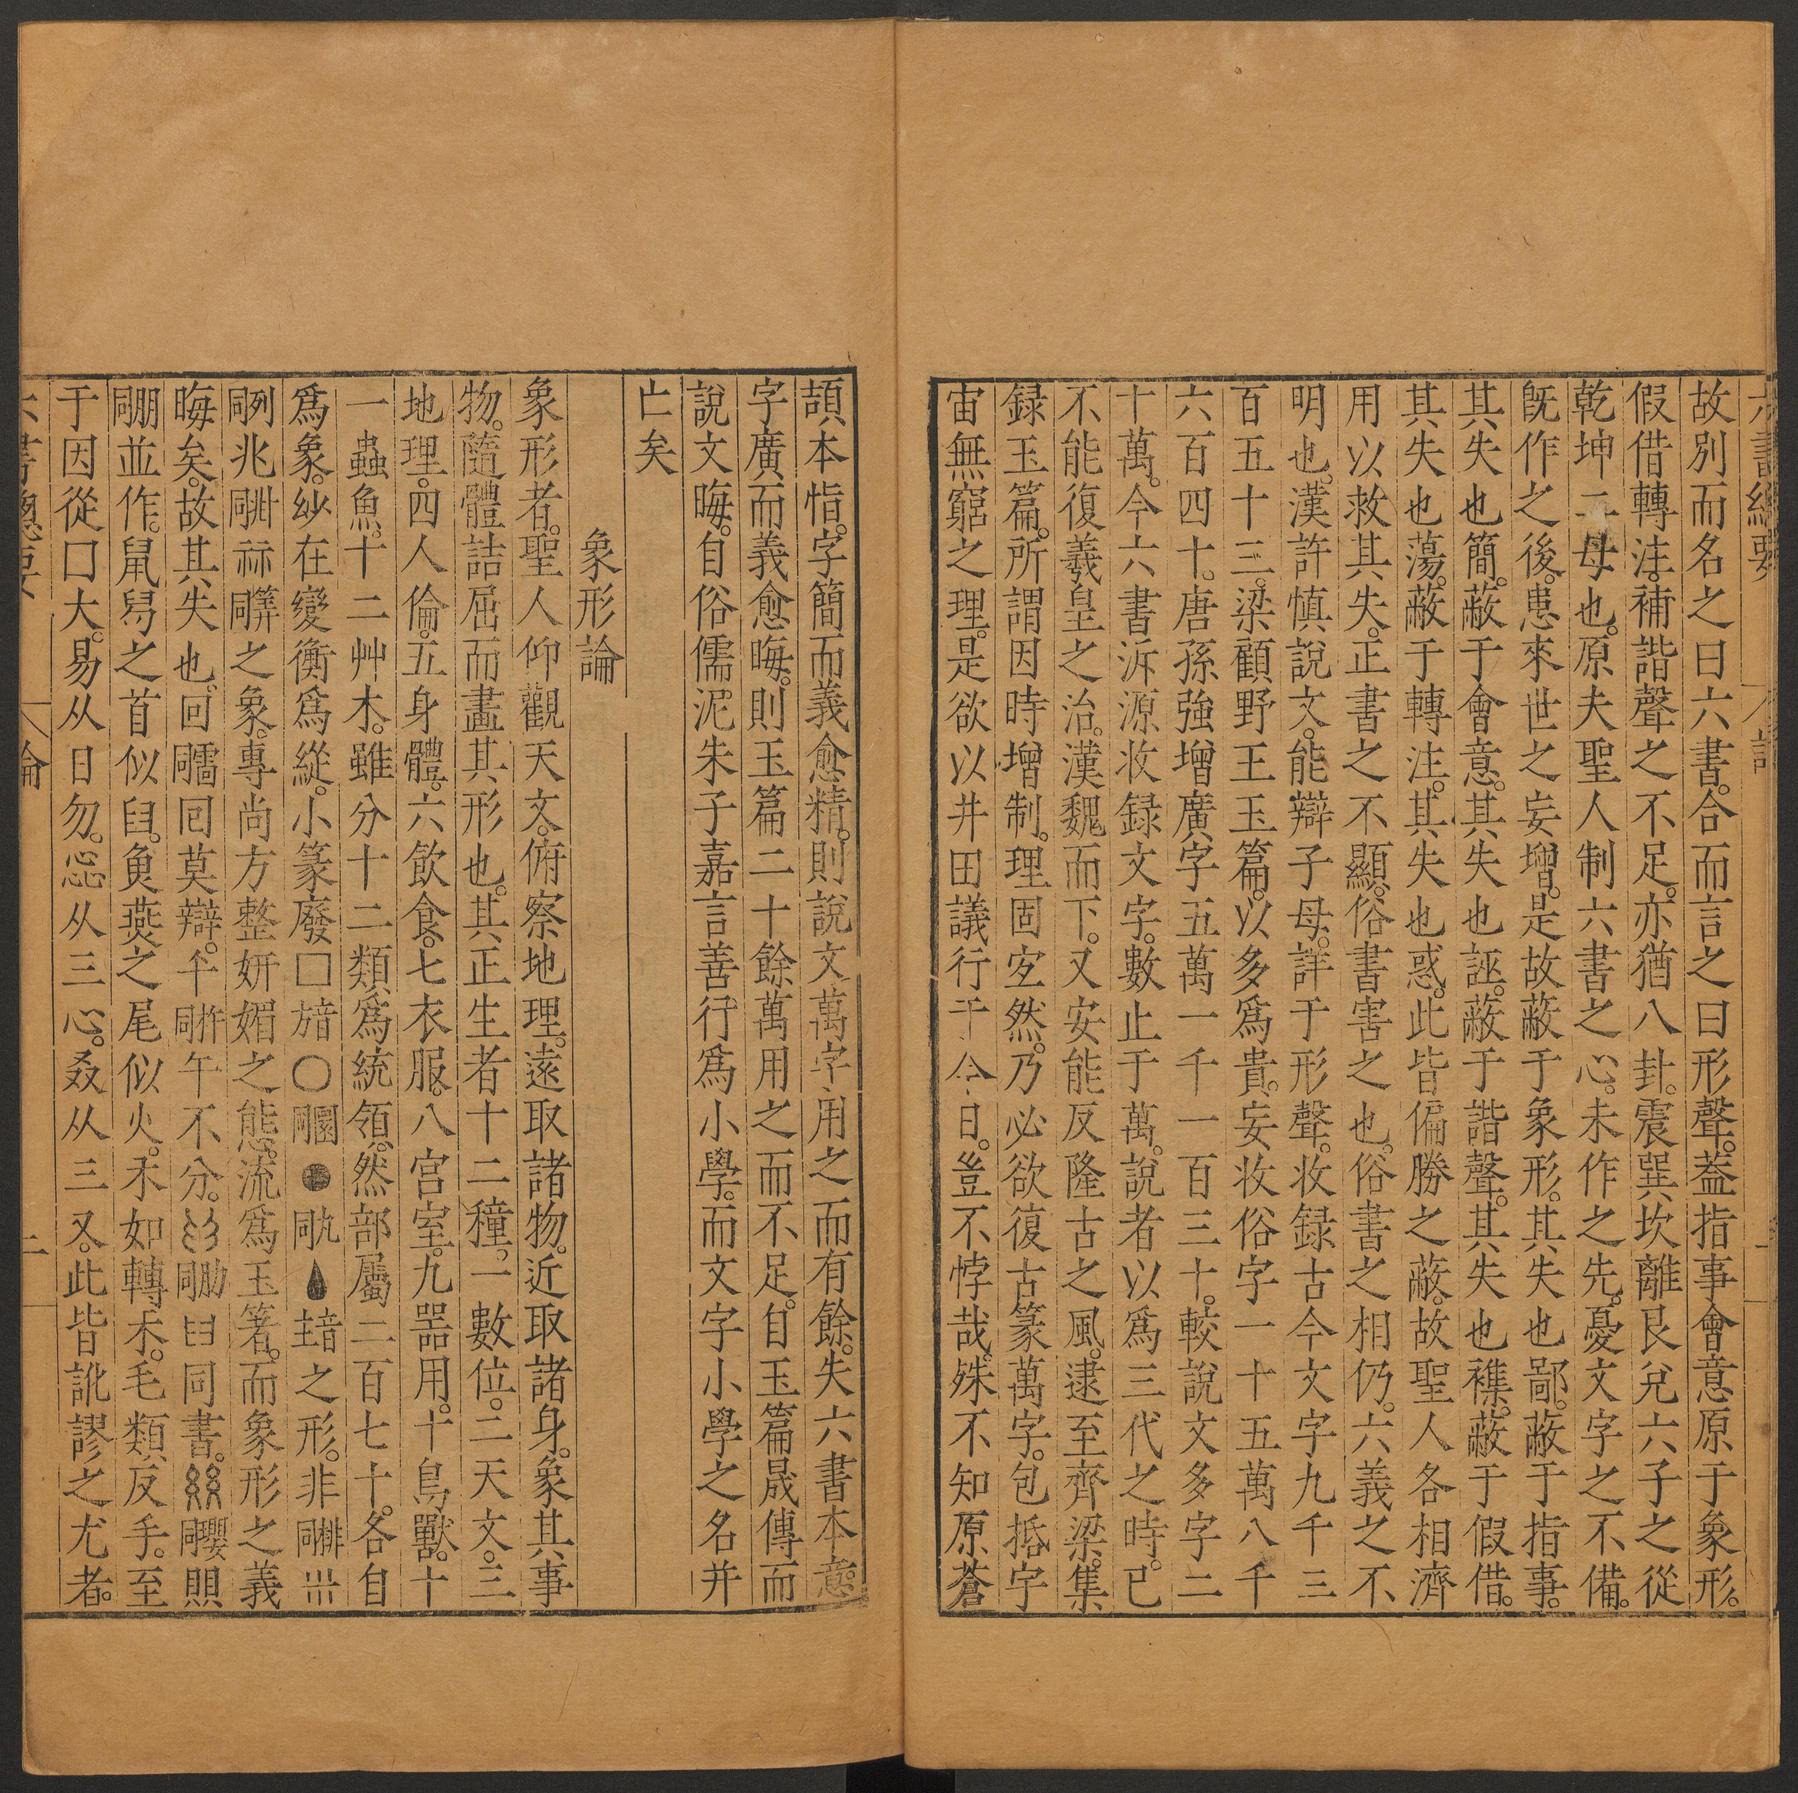 故別而名之曰六書。合而言之曰形聲。蓋指事會意原于象形。
假借轉注。補諧聲之不足。亦猶八卦。震巽坎離艮兌六子之從
乾坤二母也。原夫聖人制六書之心。未作之先。憂文字之不備。
旣作之後。患來世之妄增。是故蔽于象形。其失也鄙。蔽于指事。
其失也簡。蔽于會意。其失也誣。蔽于諧聲。其失也襍。蔽于假借。
其失也蕩。蔽于轉注。其失也惑。此皆偏勝之蔽。故聖人各相濟
用以救其失。正書之不顯。俗書害之也。俗書之相仍。六義之不
明也。漢許慎說文。能辯子母。詳于形聲。收録古今文字九千三
百五十三。梁顧野王玉篇。以多爲貴。妄收俗字一十五萬八千
六百四十。唐孫強增廣字五萬一千一百三十。較說文多字二
十萬。今六書泝源收録文字。數止于萬。說者以爲三代之時。已
不能復羲皇之治。漢魏而下。又安能反隆古之風。逮至齊梁。集
録玉篇。所謂因時增制。理固宜然。乃必欲復古篆萬字。包括字
宙無窮之理。是欲以井田議行于今日。豈不悖哉。殊不知原蒼
頡本恉。字簡而義愈精。則說文萬字用之而有餘。失六書本意
字廣而義愈晦。則玉篇二十餘萬用之而不足。自玉篇晟傳而
說文晦。自俗儒泥朱子嘉言善行爲小學。而文字小學之名并
亡矣
象形論
象形者。聖人仰觀天文。俯察地理。遠取諸物。近取諸身。象其事
物。隨體詰屈而畫其形也。其正生者十二種。一數位。二天文。三
地理。四人倫。五身體。六飲食。七衣服。八宮室。九器用。十鳥獸。十
一蟲魚。十二艸木。雖分十二類爲統領。然部屬二百七十。各自
爲象。紗在變衡爲縱。小篆廢□○之形。非
兆之象。專尚方整妍媚之態。流爲玉箸。而象形之義
晦矣。故其失也。回莫辯。午不分。同書。
並作。鼠舄之首似臼。魚燕之尾似火。禾如轉木。毛類反手。至
于因從囗大。易从日勿。惢从三心。叒从三又。此皆訛謬之尤者。
六書總要 論 二